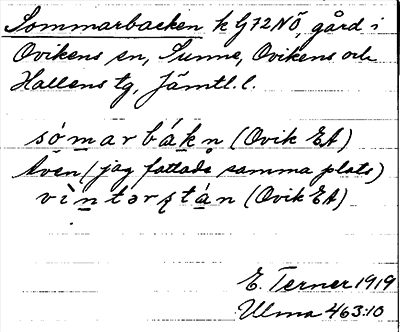 Sommarbacken k G72NÖ, gård i
Ovikens sn, Sunne, Ovikens och
Hallens tg, Jämtl. l.
sómarbákn̥ (Ovik EA)
Även (jag fattade samma plats)
vìntərstán (Ovik EA)
E. Terner 1919
Ulma 463:10